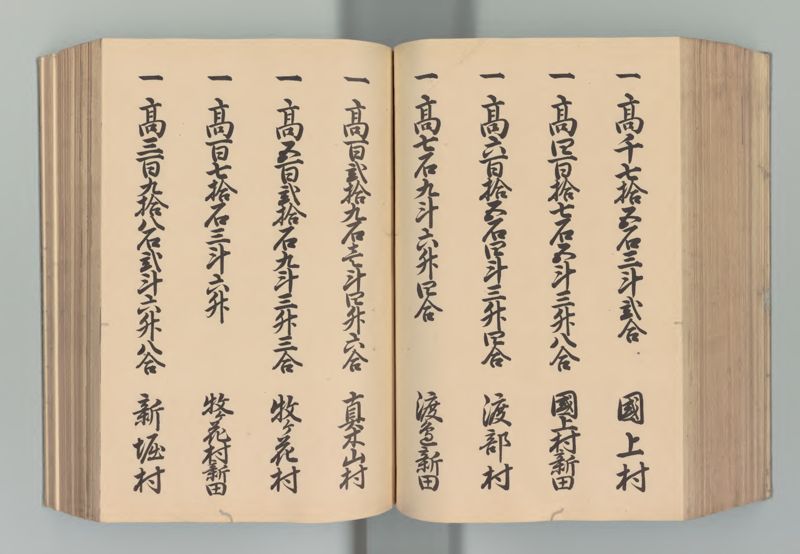 一高千七拾五石三斗弐合 國上村
一高四百拾七石五斗三升八合 國上村新田
一高六百拾五石四斗三升四合 渡部村
一高七石九斗六升四合 渡部新田
一高百弐拾九石壱斗四升六合 真木山村
一高五百弐拾石九斗三升三合 牧ヶ花村
一高百七拾石三斗六升 牧ヶ花村新田
一高三百九拾八石弐斗六升八合 新堀村